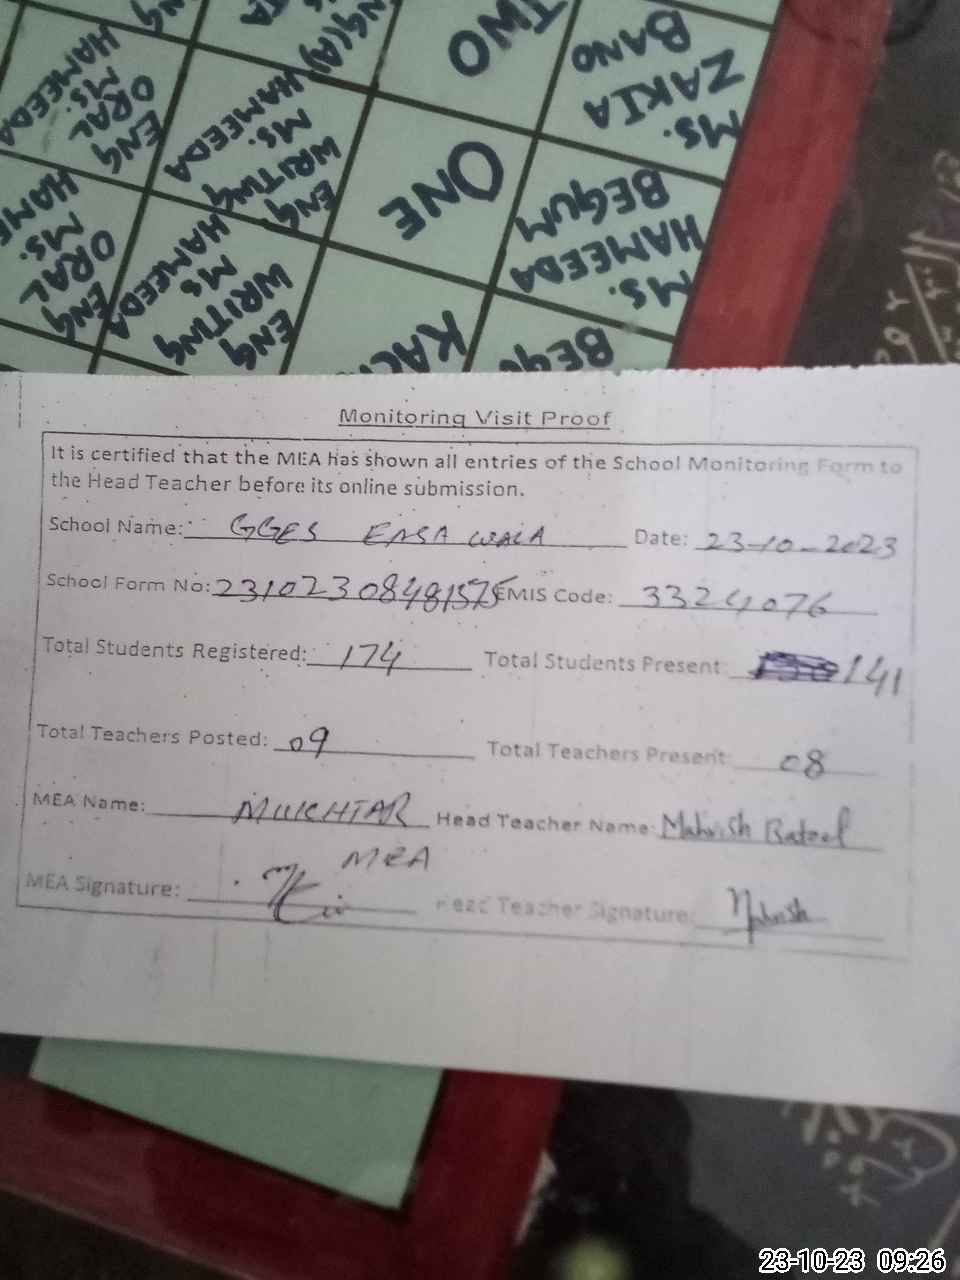 TWO
MS. ZAKIA BANO
ENG ORAL MS. HAMEEDA
ENG WRITING MS. HAMEEDA
ONE
MS. HAMEEDA BEGUM
ENG ORAL MS.
ENG WRITING MS HAMEEDA
Monitoring Visit Proof
It is certified that the MEA has shown all entries of the School Monitoring Form to
the Head Teacher before its online submission.
School Name: GGES EASA WALA Date: 23-10-2023
School Form No: 23102308481575 EMIS Code: 33224076
Total Students Registered: 174 Total Students Present: 141
Total Teachers Posted: 09 Total Teachers Present: 08
MEA Name: MUKHTAR Head Teacher Name: Mahvish Batool
MEA
MEA Signature: Head Teacher Signature: Mahvish
23-10-23 09:26